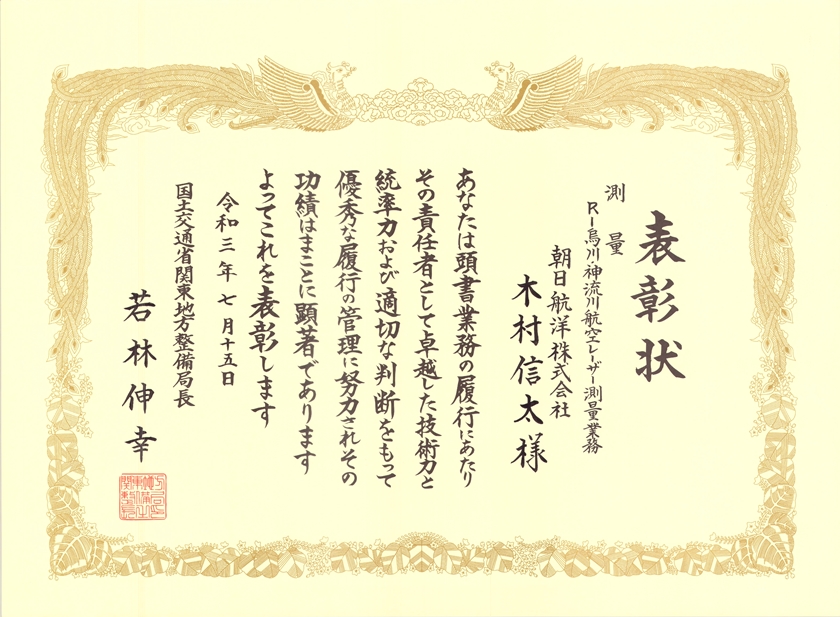 表彰状
測量
R1烏川・神流川航空レーザー測量業務
朝日航洋株式会社
木村信太様
あなたは頭書業務の履行にあたり
その責任者として卓越した技術力と
統率力および適切な判断をもって
優秀な履行の管理に努力されその
功績はまことに顕著であります
よってこれを表彰します
令和三年七月十五日
国土交通省関東地方整備局長
若林伸幸